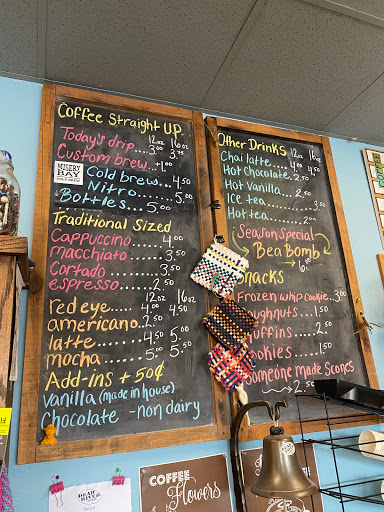 Coffee Straight UP
12oz 16oz
Today's drip....3.00 3.75
Custom brew...+1.00
MISERY BAY
Cold brew...4.50
Nitro.......5.50
Bottles.....5.00
Traditional Sized
Cappuccino.....4.00
macchiato......3.50
Cortado........3.50
espresso.......2.50
12oz 16oz
red eye........4.00 4.50
americano...2.50
latte..........4.50 5.00
mocha..........5.00 5.50
Add-ins + 50¢
Vanilla (made in house)
Chocolate -non dairy
Other Drinks 12oz 16oz
Chai latte....4.00
Hot chocolate..
Hot Vanilla....2.50
Ice tea..........3.50
Hot tea.........2.00
Season Special
Bea Bomb
6.00
Frozen whip cookie..3.00
1.50
2.50
1.50
Someone made Scones
2.50
COFFEE
Flowers
COFFEE